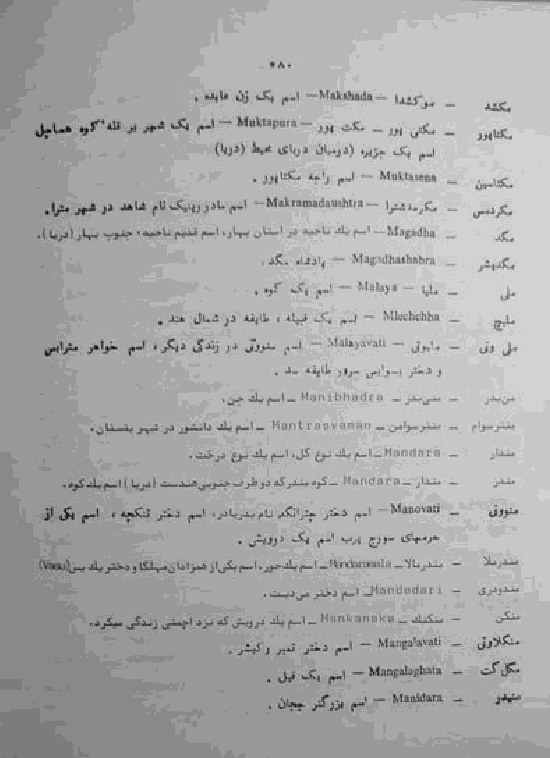 ۲۸۰
مکشد – موکشدا – Makshada – اسم یک زن عابده .
مکتاپور – مکتی پور – مکت پور – Muktapura – اسم یک شهر بر قله کوه هماچل
اسم یک جزیره (درمیان دریای محیط (دریا)
مکتاسین – Muktasena – اسم راجه مکتاپور .
مکردمس – مکرمدشترا – Makramadaushtra – اسم مادر روپنیک نام شاهد در شهر مترا .
مگد – Magadha – اسم یك ناحیه در استان بهار، اسم قدیم ناحیهء جنوب بهار (دریا) .
مگدیشر – Magadhashabra – پادشاه مگد .
ملی – ملیا – Malaya – اسم یک کوه .
ملیچ – Mlechchha – اسم یک قبیله ، طایفه در شمال هند .
ملی وتی – ملیوتی – Malayavati – اسم منوتی در زندگی دیگر، اسم خواهر متراپس
و دختر بسوابس سرور طایفه سد .
من‌بدر – منی‌بدر – Manibhadra – اسم یك جن .
منترسوام – منترسوامن – Mantrasvaman – اسم یك دانشور در شهر
مندار – Mandara – اسم یك نوع گل، اسم یك نوع درخت .
مندر – مندار – Mandara – کوه مندرکه دو طرف جنوبی هندست (دریا) اسم یك کوه .
منووتی – Manovati – اسم دختر چترانگد نام بدریادر، اسم دختر ، اسم یکی از
حرمهای سورج پرب اسم یک درویش .
مندرملا – مندرمالا – Mandaramala – اسم یك حور، اسم یکی از همزادان مهلکا و دختر یك بس (Vasu)
مندودری – Mandodari – اسم دختر می‌دیت .
منکن – منکنك – Mankanaka – اسم یك درویش که نزد اجمتی زندگی میکرد .
منگلاوتی – Mangalavati – اسم دختر تدبر وکیشر .
مگل گت – Mangalaghata – اسم یک فیل .
منیدر – Manidara – اسم بزرگتر جچان .